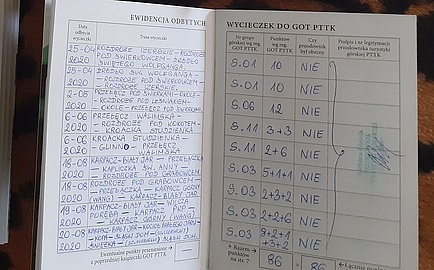 EWIDENCJA ODBYTYCH
WYCIECZEK DO GOT PTTK
Data odbycia wycieczki
Trasa wycieczki
Nr grupy górskiej wg reg. GOT PTTK
Punktów wg reg. GOT PTTK
Czy przodownik był obecny
Podpis i nr legitymacji przodownika turystyki górskiej PTTK
25-04 2020 ROZDROŻE IZERSKIE - ROZDROŻE
POD ŚWIERKOWCEM - ŹRÓDŁO
ŚWIĘTEGO WOLFGANGA
S.01 10 NIE
25-04 2020 ŹRÓDŁO ŚW. WOLFGANGA
- ROZDROŻE POD ŚWIERKOWCEM
- ROZDROŻE IZERSKIE
S.01 10 NIE
2-05 2020 PRZEŁĘCZ POD
- OKOLE - ROZDROŻE POD LEŚNIAKIEM
- OKOLE - PRZEŁĘCZ POD
S.06 12 NIE
6-06 2020 PRZEŁĘCZ WALIMSKA
- ROZDROŻE POD KOKOTEM -
KROACKA STUDZIENKA
S.11 3+3 NIE
6-06 2020 KROACKA STUDZIENKA -
GLINNO - PRZEŁĘCZ
WALIMSKA
S.11 2+6 NIE
18-08 2020 KARPACZ-BIAŁY JAR - PRZEŁĄCZKA
- KAPLICZKA ŚW. ANNY -
- ROZDROŻE POD GRABOWCEM
S.03 5+1+1 NIE
18-08 2020 ROZDROŻE POD GRABOWCEM
- PRZEŁĄCZKA - KARPACZ GÓRNY
(WANG) - KARPACZ-BIAŁY JAR
S.03 2+3+2 NIE
19-08 2020 KARPACZ-BIAŁY JAR - WILCZA
PORĘBA - KARPACZ
- KARPACZ GÓRNY (WANG)
S.03 2+6 NIE
20-08 2020 KARPACZ-BIAŁY JAR -
- KOPA - ŚLĄSKI DOM -
ŚNIEŻKA - ŚLĄSKI DOM
S.03 9+2+1
+3+2 NIE
Ewentualne punkty przeniesione z poprzedniej książeczki GOT PTTK
Razem punktów na str. 7
86 = 86
Łącznie punktów